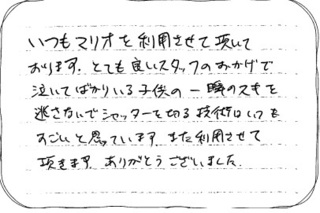 いつもマリオを利用させて頂いて
おります。とても良いスタッフのおかげで
泣いてばかりいる子供の一瞬のスキを
逃さないでシャッターを切る技術はいつも
すごいと思っています。また利用させて
頂きます。ありがとうございました。